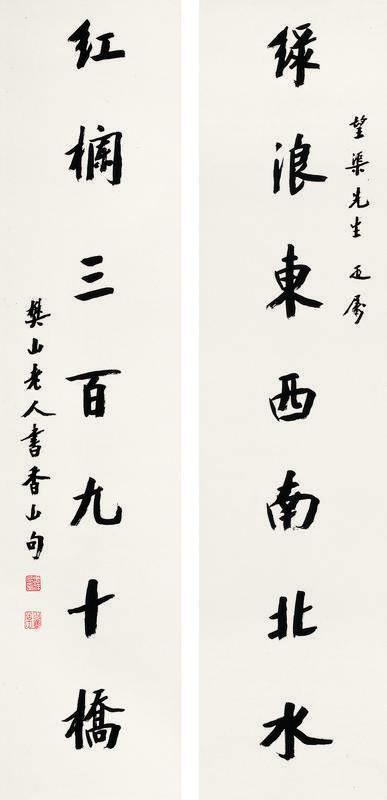 望渠先生正屬
綠浪東西南北水
紅欄三百九十橋
樊山老人書香山句